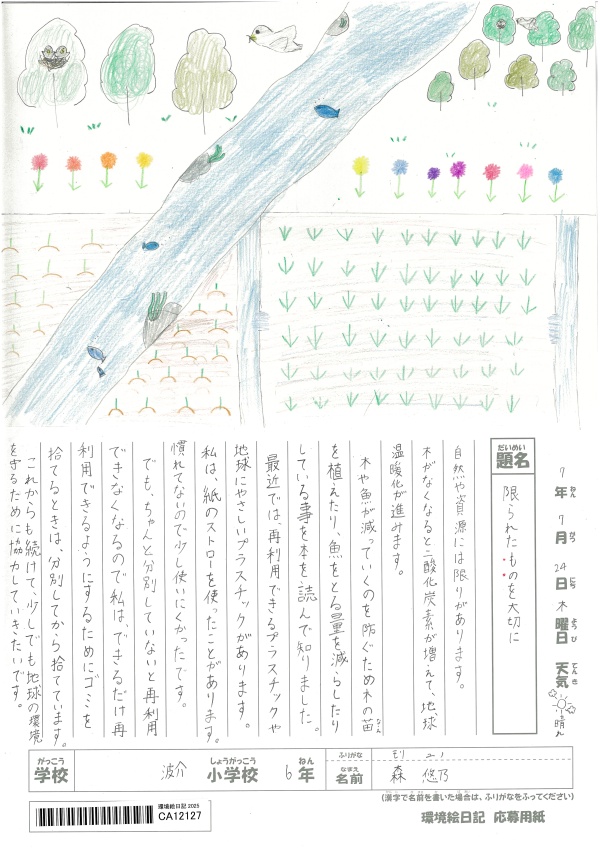 7年ねん 7月がつ 24日にち 木曜日ようび 天気てんき 晴れ
だいめい
題名
限られたものを大切に
自然や資源には限りがあります。
木がなくなると二酸化炭素が増えて、地球
温暖化が進みます。
木や魚が減っていくのを防ぐため木の苗なん
を植えたり、魚をとる量を減らしたり
している事を本を、読んで知りました。
最近では、再利用できるプラスチックや
地球にやさしいプラスチックがあります。
私は、紙のストローを使ったことがあります。
慣れてないので少し使いにくかったです。
でも、ちゃんと分別していないと再利用
できなくなるので私は、できるだけ再
利用できるようにするためにゴミを
捨てるときは、分別してから捨てています。
これからも続けて、少しでも地球の環境
を守るために協力していきたいです。
がっこう
学校
波介
しょうがっこう
小学校
6
ねん
年
ふりがな
もり
なまえ
名前
森 悠乃
(漢字で名前を書いた場合は、ふりがなをふってください)
環境絵日記 2025
CA12127
環境絵日記 応募用紙